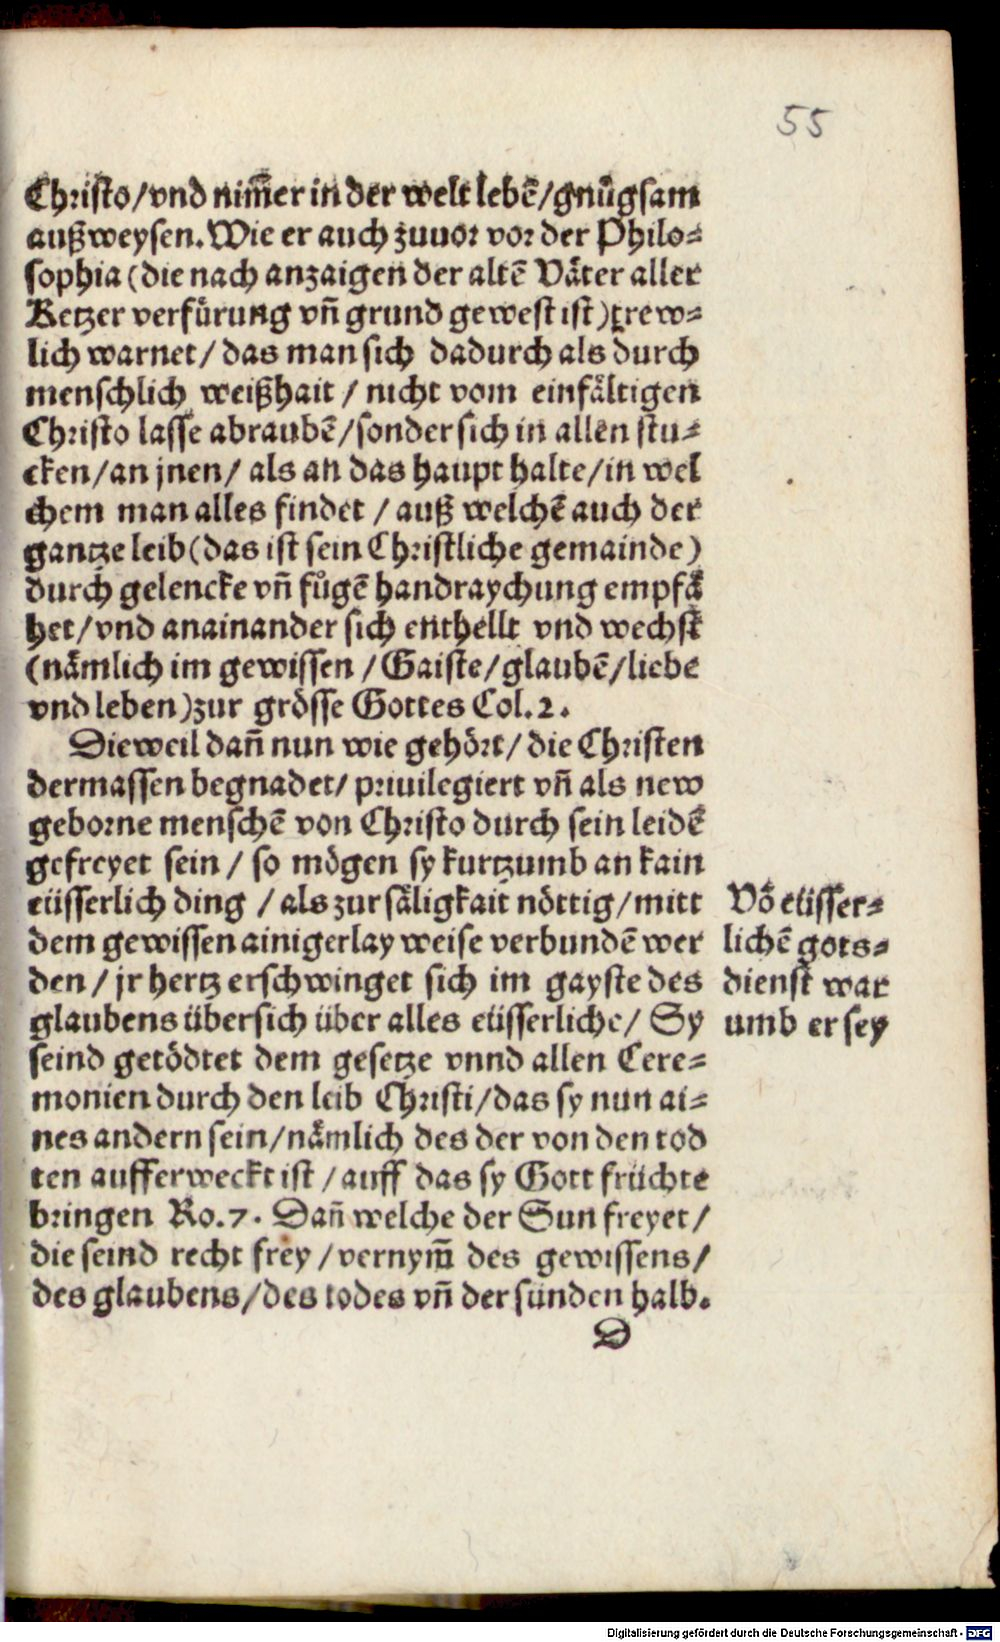 55
Christo/vnd nim̃er in der welt lebē/gnůgsam
außweysen. Wie er auch zuuor vor der Philo⸗
sophia (die nach anzaigen der altē Väter aller
Ketzer verfürung vñ grund gewest ist) trew⸗
lich warnet/das man sich dadurch als durch
menschlich weißhait/nicht vom einfältigen
Christo lasse abraubē/sonder sich in allen stu⸗
cken/an jnen/als an das haupt halte/in wel
chem man alles findet/auß welchē auch der
gantze leib (das ist sein Christliche gemainde)
durch gelencke vñ fůgē handraychung empfä
het/vnd anainander sich enthellt vnd wechst
(nämlich im gewissen/Gaiste/glaubē/liebe
vnd leben) zur grösse Gottes Col. 2.
Dieweil dañ nun wie gehört/die Christen
dermassen begnadet/priuilegiert vñ als new
geborne menschē von Christo durch sein leidē
gefreyet sein/so mögen sy kurtzumb an kain
eüsserlich ding/als zur säligkait nöttig/mitt
dem gewissen ainigerlay weise verbundē wer
den/jr hertz erschwinget sich im gayste des
glaubens übersich über alles eüsserliche/Sy
seind getödtet dem gesetze vnnd allen Cere⸗
monien durch den leib Christi/das sy nun ai⸗
nes andern sein/nämlich des der von den tod
ten aufferweckt ist/auff das sy Gott früchte
bringen Ro. 7. Dañ welche der Sun freyet/
die seind recht frey/vernym̃ des gewissens/
des glaubens/des todes vñ der sünden halb.
D
Vō eüsser⸗
lichē gots⸗
dienst war
umb er sey
Digitalisierung gefördert durch die Deutsche Forschungsgemeinschaft - DFG